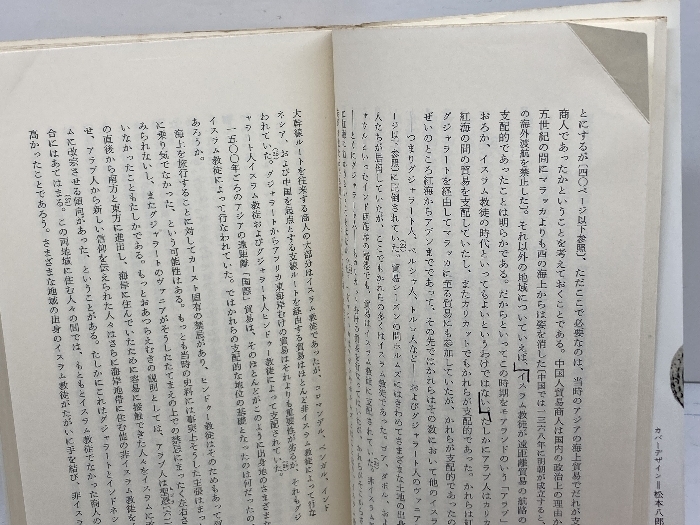 とにするが（四〇ページ以下参照）、ただここで必要なのは、当時のアジアの海上貿易でだれが支
商人であったかということを考えておくことである。中国人貿易商人は国内の政治上の理由か
五世紀の間にマラッカよりも西の海上からは姿を消した（中国では一三六八年に明朝が成立すると
の海外渡航を禁止した）。それ以外の地域についていえば、イスラム教徒が遠距離貿易の航路の
支配的であったことは明らかである。だからといってこの時期をモアランドのいう「アラブ」
おろか、イスラム教徒の時代といってもよいというわけではない。たしかにアラブ人はカリカ
紅海の間の貿易を支配していたし、またカリカットでもかれらが支配的であった。かれらは紅
グジャラートを経由してマラッカに至る貿易にも参加していたが、かれらが支配的であったの
ぜいのところ紅海からアデンまでであって、その先ではかれらはその数において他のイスラ
つまりグジャラート人、ペルシャ人、トルコ人など――およびグジャラート人のヴァニア
ージ以下参照）に圧倒されていた。貿易シーズンの間ホルムズにはきわめてさまざまな土地の出身
人たちが居住していたが、ここでもかれらの多くはイスラム教徒であった。ゴア、ダボル、および
大幹線ルートを往来する商人の大部分はイスラム教徒であったが、コロマンデル、ベンガル、インド
ネシア、および中国を起点とする支線ルートを経由する貿易はほとんど非イスラム教徒によって行な
われていた。グジャラートからアフリカ東海岸むけの貿易はそれよりも重要性があるが、それもグジ
ャラート人イスラム教徒およびグジャラート人ヒンドゥー教徒によって支配されていた。
一五〇〇年ごろのアジアの遠距離「国際」貿易は、そのほとんどがこのように出身地のさまざまな
イスラム教徒によって行なわれていた。ではかれらの支配的な地位の基礎となったのは何だったので
あろうか。
海上を旅行することに対してカースト固有の禁忌があり、ヒンドゥー教徒はそのためもあって
に乗り気でなかった、という可能性はある。もっとも当時の史料には事実上そうした主張はまった
みられないし、またグジャラートのヴァニアがそうしたたてまえの上での禁忌にまったく左右さ
いなかったこともたしかである。もっとおあつらえむきの説明としては、アラブ人は聖遷
の直後から南方と東方に進出し、海岸に住んでいたために容易に接触できた人々をイスラムに
せ、アラブ人から新しい信仰を伝えられた人々はさらに海岸地帯に住む他の非イスラム教徒を
ムに改宗させる傾向があった、ということがある。たしかにこれはグジャラートとインドネシ
合にはあてはまる。この両地域に住む人々の間では、もともとイスラム教徒でなかった商人の
高かったことであろう。さまざまな地域の出身のイスラム教徒がたがいに手を結び、非イスラ
カバーデザイン＝松本八郎